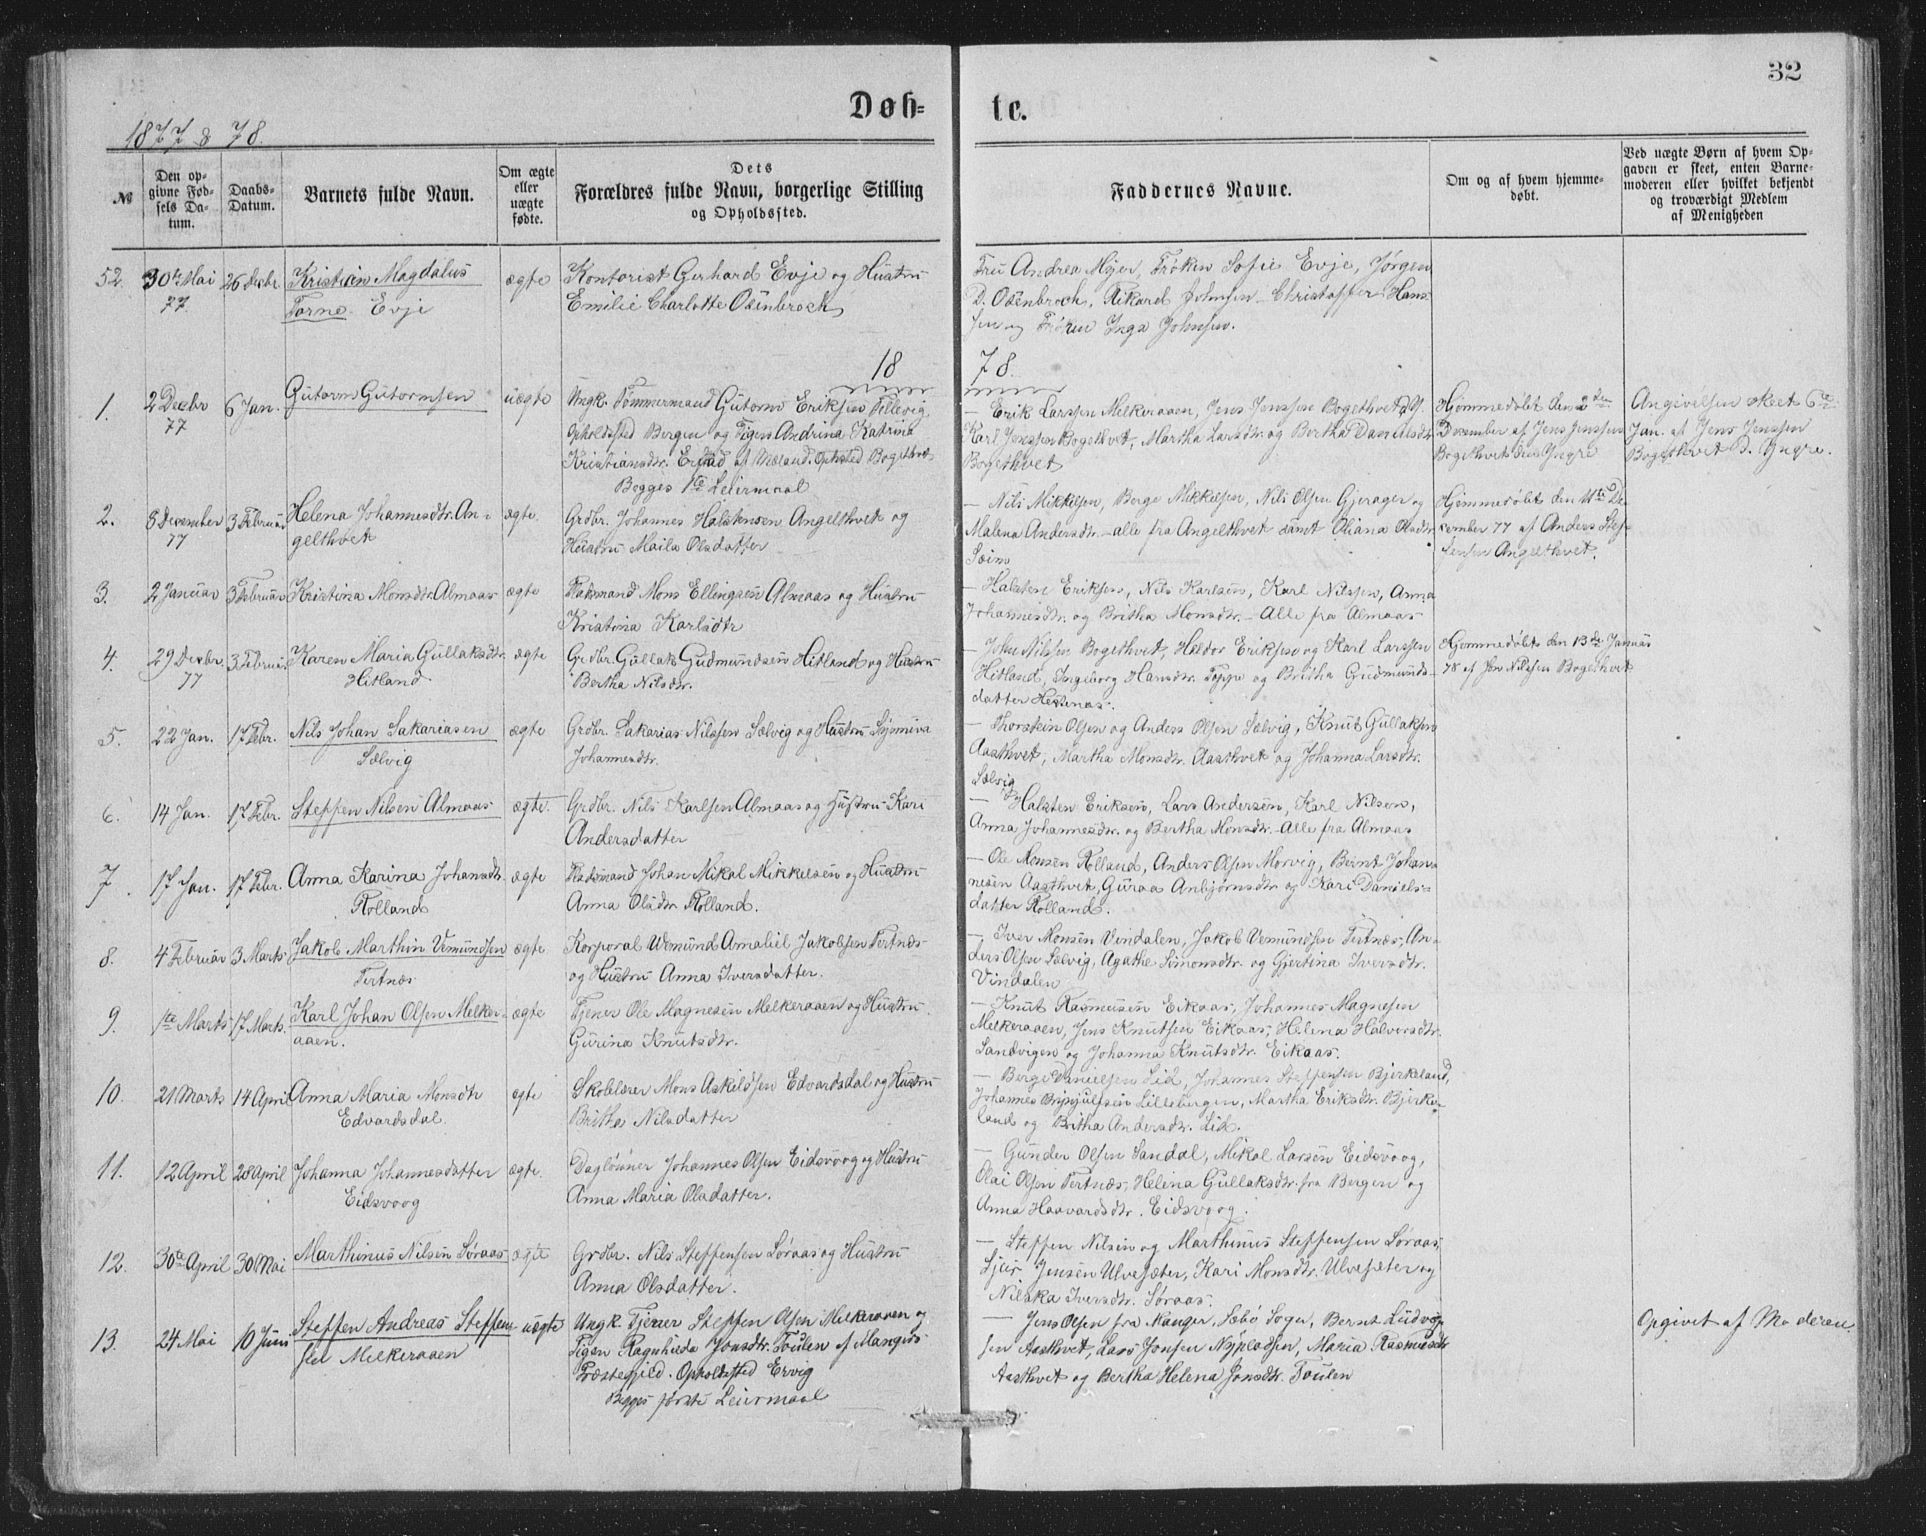 32
Døb- te.
1877 & 78.
№
Den opgivne Fødsels Datum.
Daabs-Datum.
Barnets fulde Navn.
Om ægte eller uægte fødte.
Dets Forældres fulde Navn, borgerlige Stilling og Opholdssted.
Faddernes Navne.
Om og af hvem hjemmedøbt.
Ved uægte Børn af hvem Opgaven er skeet, enten Barnemoderen eller hvilket bekjendt og troværdigt Medlem af Menigheden
52. 30te Mai 77 26 Decbr.
Magdalus
Evje
ægte
Kontorist Gerhard Evje og Hustru
Emilie Charlotte Odenbroch
Fru Andrea Mejer, Frøken Sofie Evje, Jørgen
D. Odenbroch, Rikard Johnsen - Christoffer Hans
sen og Frøken Inga Johnsen.
18 78.
1. 2 Decbr 77 6 Jan.
Gutorm Gutormsen
uægte
Ungk. Tømmermand Gutorm Eriksen
Opholdsted Bergen og Pigen Andrina Katrina
Kristiansdtr. af Mæland. Ophsted Bogethvet
Begges 1te Leiermaal
— Erik Larssen Melkeraaen, Jens Jenssen Bogethvet d. Y.
Karl Jenssen Bogethvet, Martha Larsdtr. og Bertha Danielsdtr
Bogethvet
Hjemmedøbt den 2den
December af Jens Jenssen
Bogethvet den Yngre
Angivelsen skeet 6te
Jan. af Jens Jenssen
Bogethvet d. Yngre.
2. 8 December 77 3 Februar
Helena Johannesdtr. An-
gelthvet
ægte
Grdbr. Johannes Halstensen Angelthvet og
Hustru Maila Olsdatter
— Nils Mikkelsen, Berge Mikkelsen, Nils Olsen Gjerager og
Malena Andersdtr. - alle fra Angelthvet samt Oliana Olsdtr
Sæim
Hjemmedøbt den 11te De-
cember 77 af Anders Stef-
fensen Angelthvet.
3. 2 Januar 3 Februar
Kristina Monsdtr. Almaas
ægte
Pladsmand Mons Ellingsen Almaas og Hustru
Kristina Karlsdtr
— Halsten Eriksen, Nils Karlsen, Karl Nilssen, Anna
Johannesdtr. og Britha Monsdtr. - Alle fra Almaas
4. 29 Decbr. 77 3 Februar
Karen Maria Gullaksdtr.
Hitland
ægte
Grdbr. Gullak Gudmundsen Hitland og Hustru
Bertha Nilsdtr.
— John Nilssen Bogethvet, Haldor Eriksen og Karl Larssen
Hitland, Ingeborg Hansdtr. Toppe og Britha Gudmunds-
datter
Hjemmedøbt den 13de Januar
78 af Jon Nilssen Bogethvet
5. 22 Jan. 17 Febr.
Nils Johan Sakariasen
Sælvig
ægte
Grdbr. Sakarias Nilssen Sælvig og Hustru Synneva
Johannesdtr.
— Thorstein Olsen og Anders Olsen Sælvig, Knut Gullaksen
Aasthvet, Martha Monsdtr. Aasthvet og Johanna Larsdtr.
Sælvig
6. 14 Jan. 17 Febr.
Steffen Nilsen Almaas
ægte.
Grdbr. Nils Karlsen Almaas og Hustru Kari
Andersdatter
— Halsten Eriksen, Lars Andersen, Karl Nilsen,
Anna Johannesdtr. og Bertha Monsdtr. - Alle fra Almaas
7. 17 Jan. 17 Febr.
Anna Karina Johansdtr.
Rolland
ægte
Pladsmand Johan Mikal Mikkelsen og Hustru
Anna Olsdtr Rolland.
— Ole Monsen Rolland, Anders Olsen Morvig, Bernt Johan-
nesen Aasthvet, Guraa Anbjørnsdtr og Kari Daniels-
datter Rolland.
8. 4 Februar 3 Marts
Jakob Marthin Vemundsen
Tertnæs
ægte
Korporal Vemund Amaliel Jakobsen Tertnæs
og Hustru Anna Iversdatter.
— Iver Monsen Vindalen, Jakob Vemundsen Tertnæs, An-
ders Olsen Sælvig, Agathe Simonsdtr. og Gjertina Iversdtr.
Vindalen
9. 1ste Marts 17 Marts.
Karl Johan Olsen Melker-
aaen.
ægte
Tjener Ole Magnesen Melkeraaen og Hustru
Gurina Knutsdtr.
— Knut Rasmusen Eikaas, Johannes Magnesen
Melkeraaen, Jens Knutsen Eikaas, Helena Halversdtr.
Sandvigen og Johanna Knutsdtr. Eikaas.
10. 21 Marts 14 April
Anna Maria Monsdtr
Edvardsdal.
ægte
Skolelærer Mons Askildsen Edvardsdal og Hustru
Britha Nilsdatter
— Berge Danielsen Lid, Johannes Steffensen Bjerkeland,
Johannes Brynjulfsen Lillebergen, Martha Eriksdtr. Bjerke-
land og Britha Andersdtr. Lid.
11. 12 April 28 April
Johanna Johannesdatter
Eidsvoog
ægte.
Dagløner Johannes Olsen Eidsvoog og Hustru
Anna Maria Olsdatter.
— Gunder Olsen Sandal, Mikal Larsen Eidsvoog,
Olai Olsen Tertnæs, Helena Gullaksdtr. fra Bergen og
Anna Haavardsdtr. Eidsvoog.
12. 30te April 30 Mai
Marthinus Nilsen Søraas
ægte
Grdbr. Nils Steffensen Søraas og Hustru
Anna Olsdatter.
— Steffen Nilsen og Marthinus Steffensen Søraas,
Sjur Jensen Ulvesæter, Kari Monsdtr. Ulvesæter og
Nilska Iversdtr. Søraas.
13. 24 Mai 10 Juni
Steffen Andreas Steffen-
sen Melkeraaen
uægte
Ungk. Tjener Steffen Olsen Melkeraaen og
Pigen Ragnhilda Jonsdtr. Toulen af Mangers
Præstegjeld. Opholdsted Ervig
Begges første Leiermaal
— Jens Olsen fra Manger, Sæbø Sogn, Bernt Ludvig-
sen Aasthvet, Lars Jonsen Nypladsen, Maria Rasmusdtr
Aasthvet og Bertha Helena Jonsdtr. Toulen
Opgivet af Moderen.